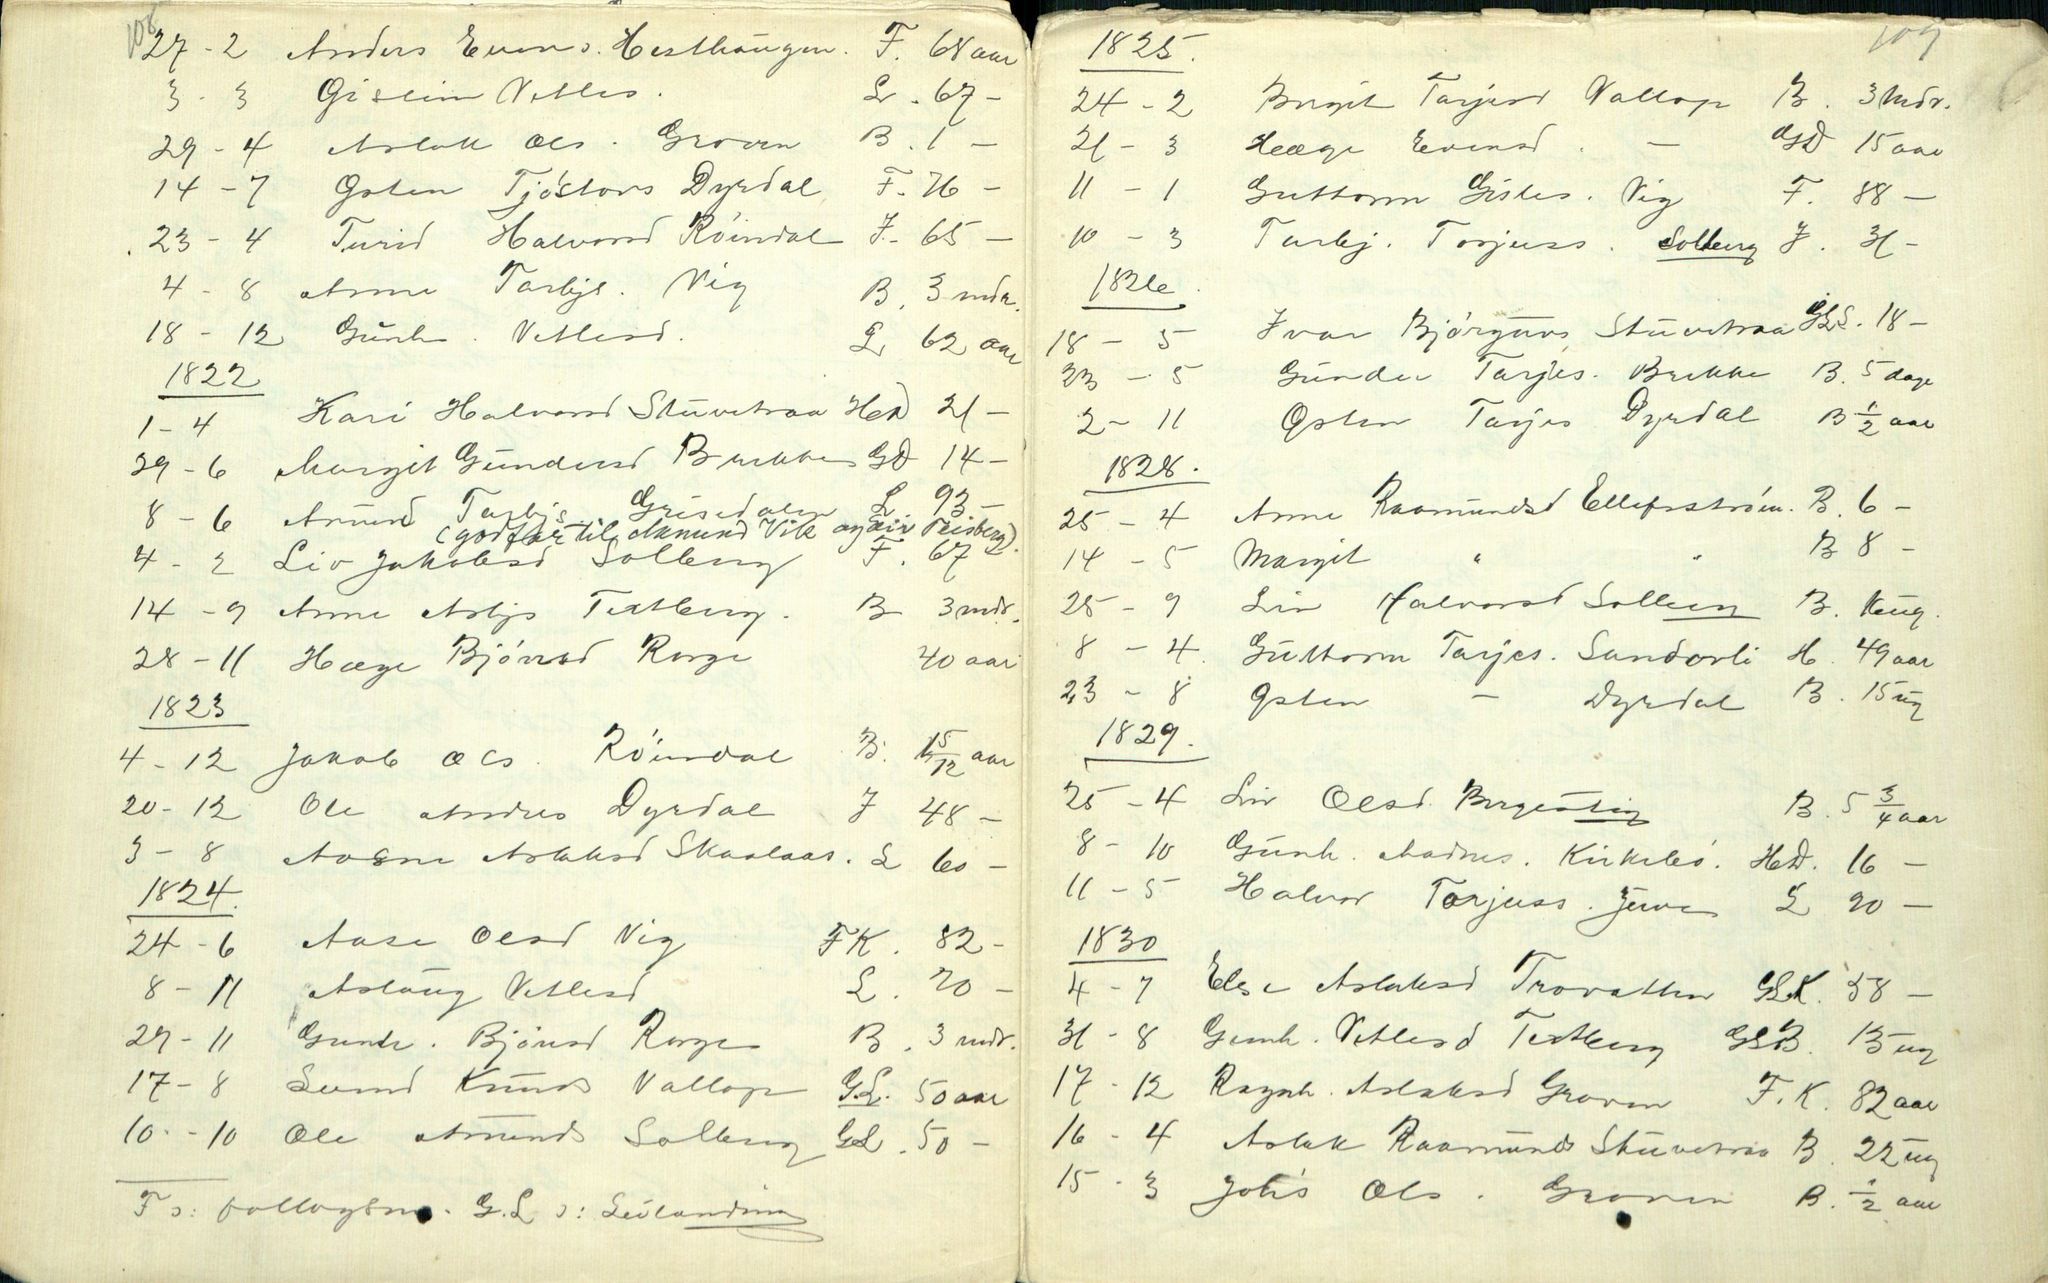 108
27 - 2 Anders Evens. Hesthaugen. F. 68 aar
3 - 3 Gislein Vetles. L. 67 -
29 - 4 Aslak Ols. Groven B. 1 -
14 - 7 Østen Tjöstovs Dyrdal F. 76 -
23 - 4 Turid Halvorsd Röindal J. 65 -
4 - 8 Anne Tarbjs. Vig B. 3 mdr.
18 - 12 Gunh. Vetlesd. L 62 aar
1822
1 - 4 Kari Halvorsd Stuvetraa HD 21 -
29 - 6 Margit Gundersd Brekke GD 14 -
8 - 6 Amund Tarbjs Grisedalen L 93 -
(godfar til Amund Vik og Teisberg).
4 - 2 Liv Jakobsd Solberg F. 67 -
14 - 9 Anne Asbjs Tertberg. B 3 mdr.
28 - 11 Hæge Bjönsd Rorge 40 aar
1823
4 - 12 Jakob Ols. Röindal B. 15/12 aar
20 - 12 Ole Andres Dyrdal J 48 -
3 - 8 Aasne Aslaksd Skaalaas. L 60 -
1824.
24 - 6 Aase Olsd Vig FK. 82 -
8 - 11 Aslaug Vetlesd L. 70 -
27 - 11 Gunh. Bjönsd Rorge B. 3 mdr.
17 - 8 Svend Knuds Vallop G.L. 50 aar
10 - 10 Ole Amunds Solberg GL. 50 -
F ɔ: follogsm. G.L ɔ: Leilending
109
1825.
24 - 2 Birgit Tarjesd Vallop B. 3 mdr.
21 - 3 Hæge Evensd. - GD 15 aar
11 - 1 Guttorm Gisles. Vig F. 88 -
10 - 3 Tarbj. Torjuss. Solberg J. 31 -
1826.
18 - 5 Ivar Björguvs Stuvetraa GLS. 18 -
23 - 5 Gunder Tarjes. Brekke B. 5 dage
2 - 11 Østen Tarjes Dyrdal B ½ aar
1828.
25 - 4 Anne Raamundsd Ellefsström. B. 6 -
14 - 5 Margit " " B 8 -
25 - 9 Liv Halvorsd Solberg B. 1 ug.
8 - 4. Guttorm Tarjes. Sundsvli H. 49 aar
23 - 8 Østen - Dyrdal B. 15 ug
1829.
25 - 4 Liv Olsd. Bergestig B. 5 ¾ aar
8 - 10 Gunh. Madses. Kirkebö. HD. 16 -
11 - 5 Halvor Torjuss. Juve L 90 -
1830
4 - 7 Else Aslaksd Trovatten GLK. 58 -
31 - 8 Gunh. Vetlesd Tertberg GLB. 13 ug
17 - 12 Ragnh. Aslaksd Groven F.K. 82 aar
16 - 4 Aslak Raamunds Stuvetraa B. 22 ug
15 - 3 Johs Ols. Groven B. ½ aar